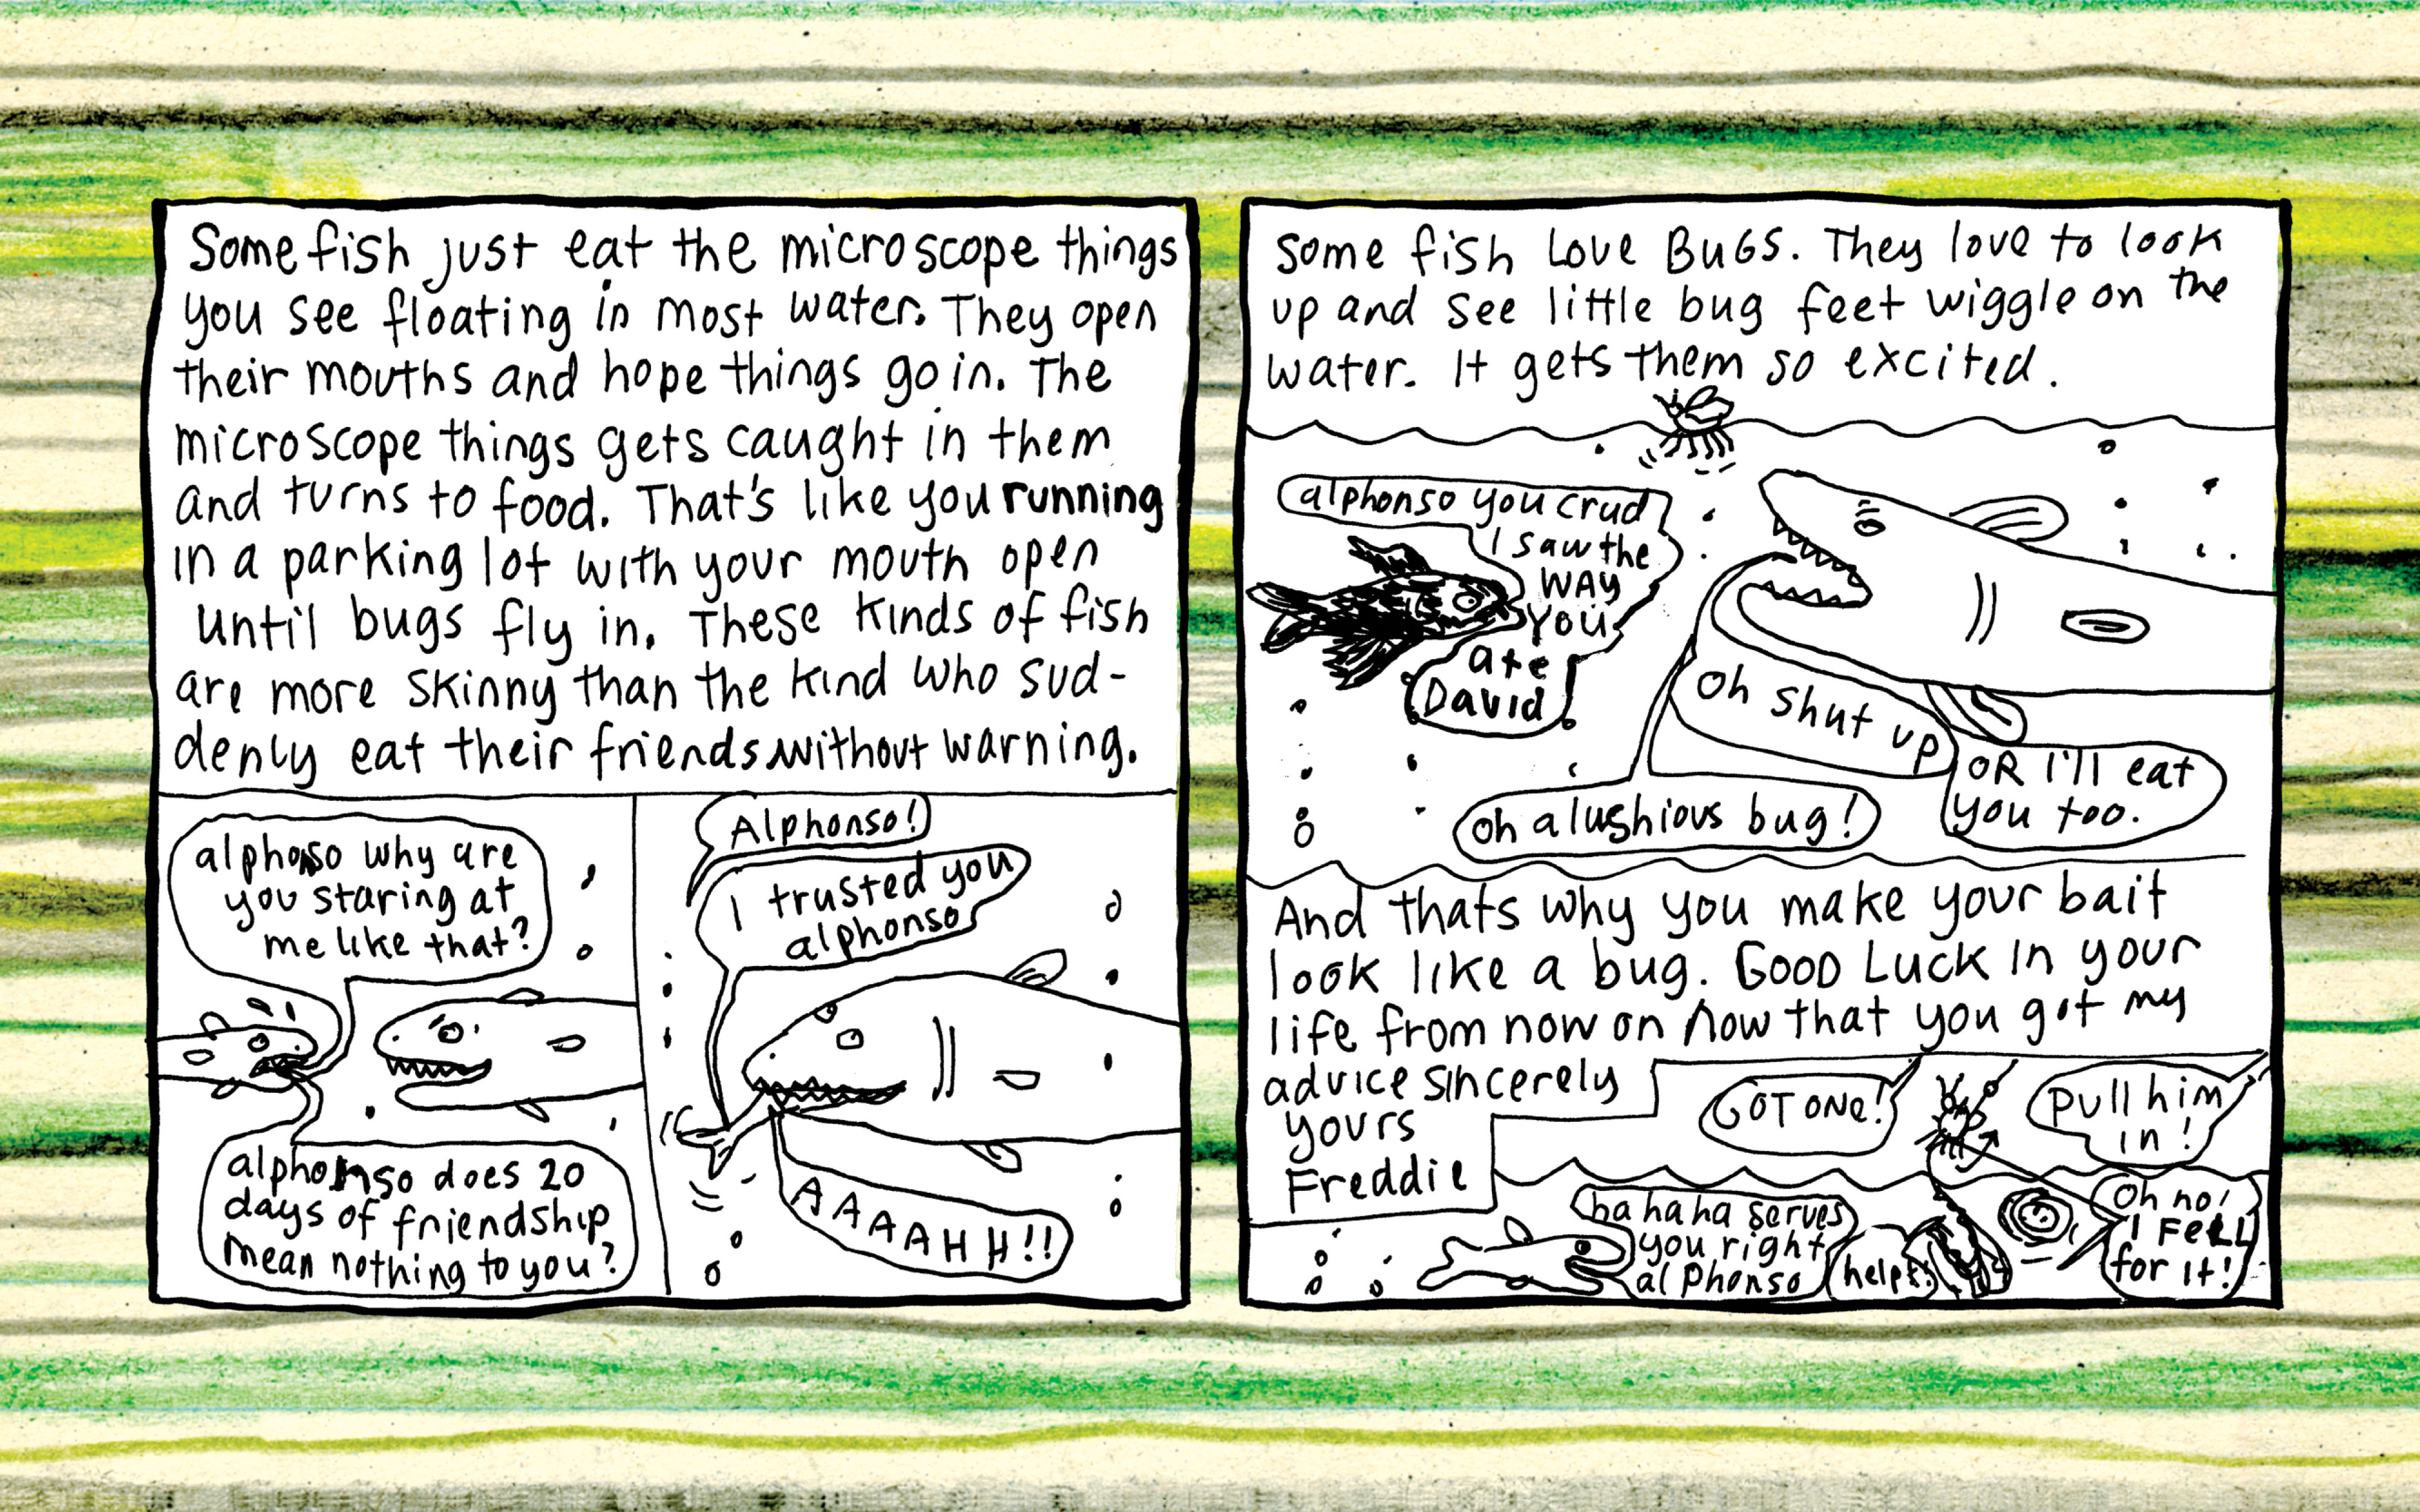 Some fish just eat the microscope things
you see floating in most water. They open
their mouths and hope things go in. The
microscope things gets caught in them
and turns to food. That's like you running
in a parking lot with your mouth open
until bugs fly in. These kinds of fish
are more skinny than the kind who sud-
denly eat their friends without warning.
alphonso why are
you staring at
me like that?
alphonso does 20
days of friendship
mean nothing to you?
Alphonso!
I trusted you
alphonso
AAAAHH!!
Some fish Love BUGS. They love to look
up and see little bug feet wiggle on the
water. It gets them so excited.
alphonso you crud
I saw the
WAY
YOU
ate
David
Oh shut up
OR I'll eat
you too.
Oh a lushious bug!
And thats why you make your bait
look like a bug. GOOD LUCK in your
life from now on now that you got my
advice sincerely
yours
Freddie
GOT ONe!
Pull him
in!
ha ha ha serves
you right
alphonso
help!
Oh no!
I FELL
for it!